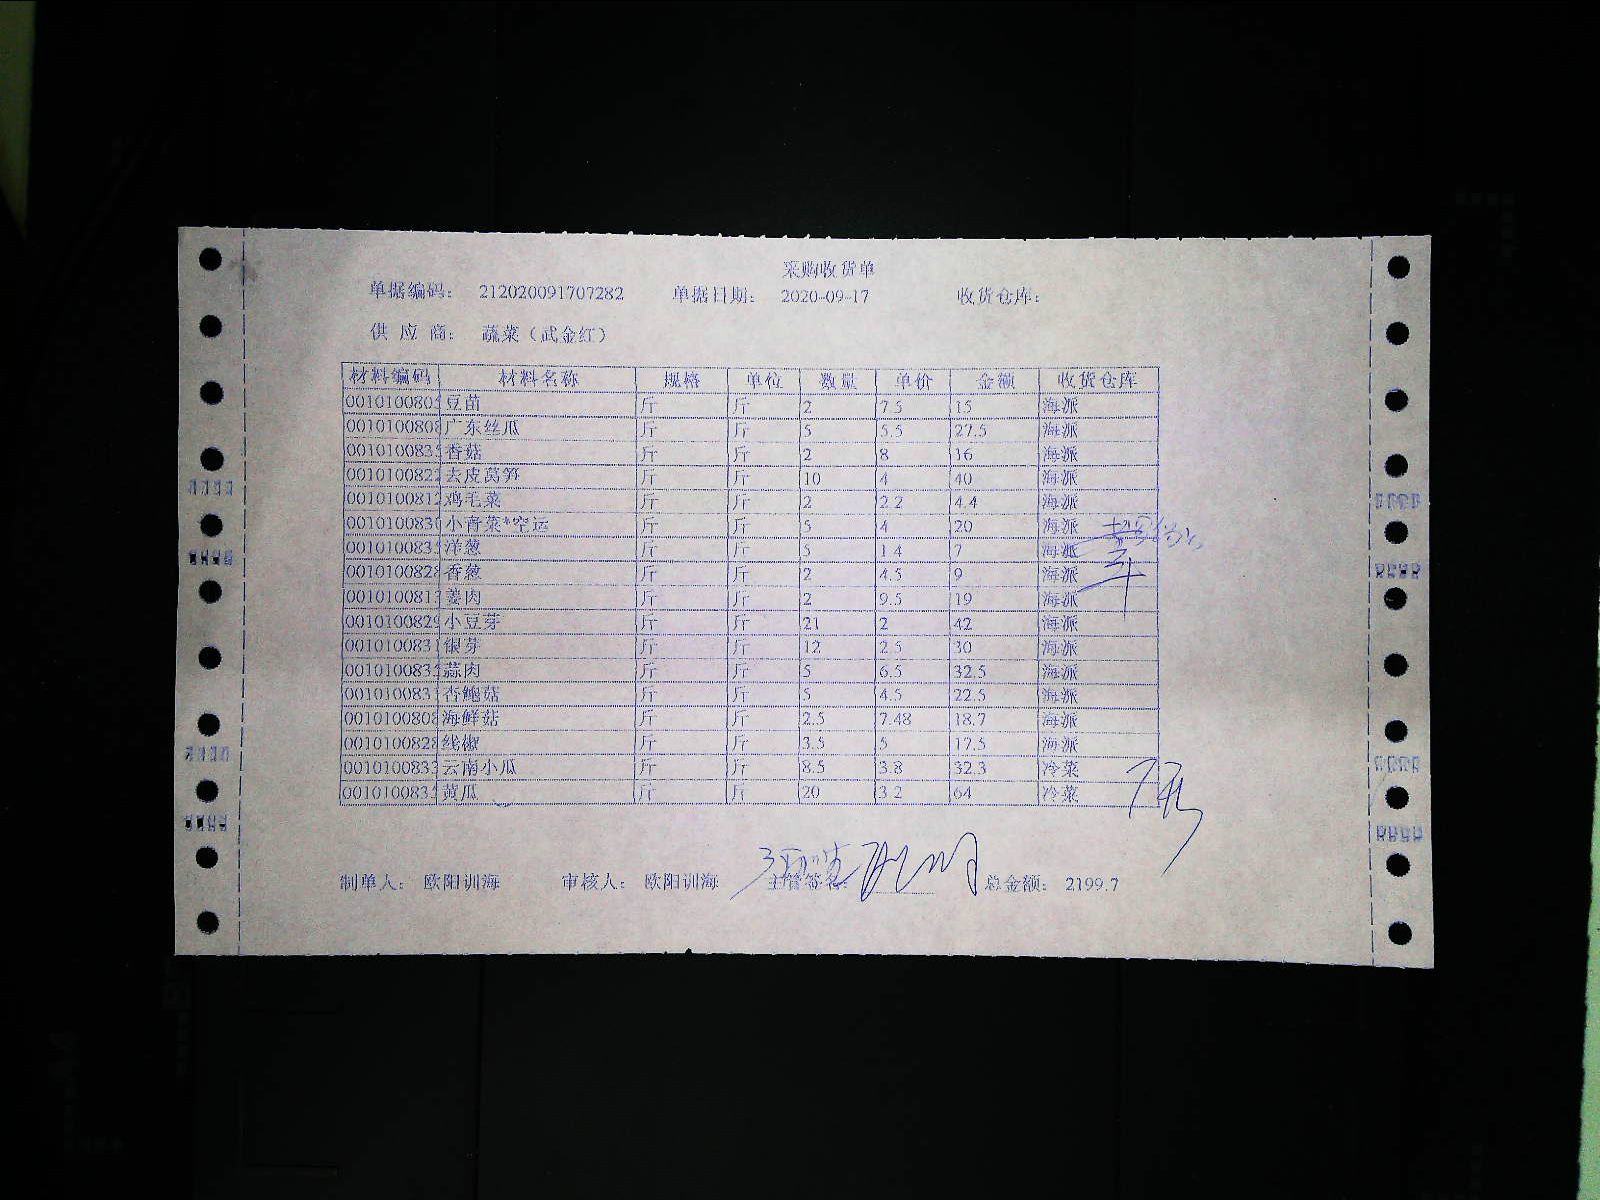 采购收货单
单据编码： 212020091707282 单据日期： 2020-09-17 收货仓库：
供 应 商： 蔬菜（武金红）
材料编码 材料名称 规格 单位 数量 单价 金额 收货仓库
0010100805 豆苗 斤 斤 2 7.5 15 海派
0010100808 广东丝瓜 斤 斤 5 5.5 27.5 海派
0010100835 香菇 斤 斤 2 8 16 海派
0010100822 去皮莴笋 斤 斤 10 4 40 海派
0010100812 鸡毛菜 斤 斤 2 2.2 4.4 海派
0010100830 小青菜*空运 斤 斤 5 4 20 海派
0010100835 洋葱 斤 斤 5 1.4 7 海派
0010100828 香葱 斤 斤 2 4.5 9 海派
0010100813 姜肉 斤 斤 2 9.5 19 海派
0010100829 小豆芽 斤 斤 21 2 42 海派
0010100831 银芽 斤 斤 12 2.5 30 海派
0010100835 蒜肉 斤 斤 5 6.5 32.5 海派
0010100831 杏鲍菇 斤 斤 5 4.5 22.5 海派
0010100808 海鲜菇 斤 斤 2.5 7.48 18.7 海派
0010100828 线椒 斤 斤 3.5 5 17.5 海派
0010100833 云南小瓜 斤 斤 8.5 3.8 32.3 冷菜
0010100835 黄瓜 斤 斤 20 3.2 64 冷菜
制单人： 欧阳训海 审核人： 欧阳训海 主管签名： 总金额： 2199.7